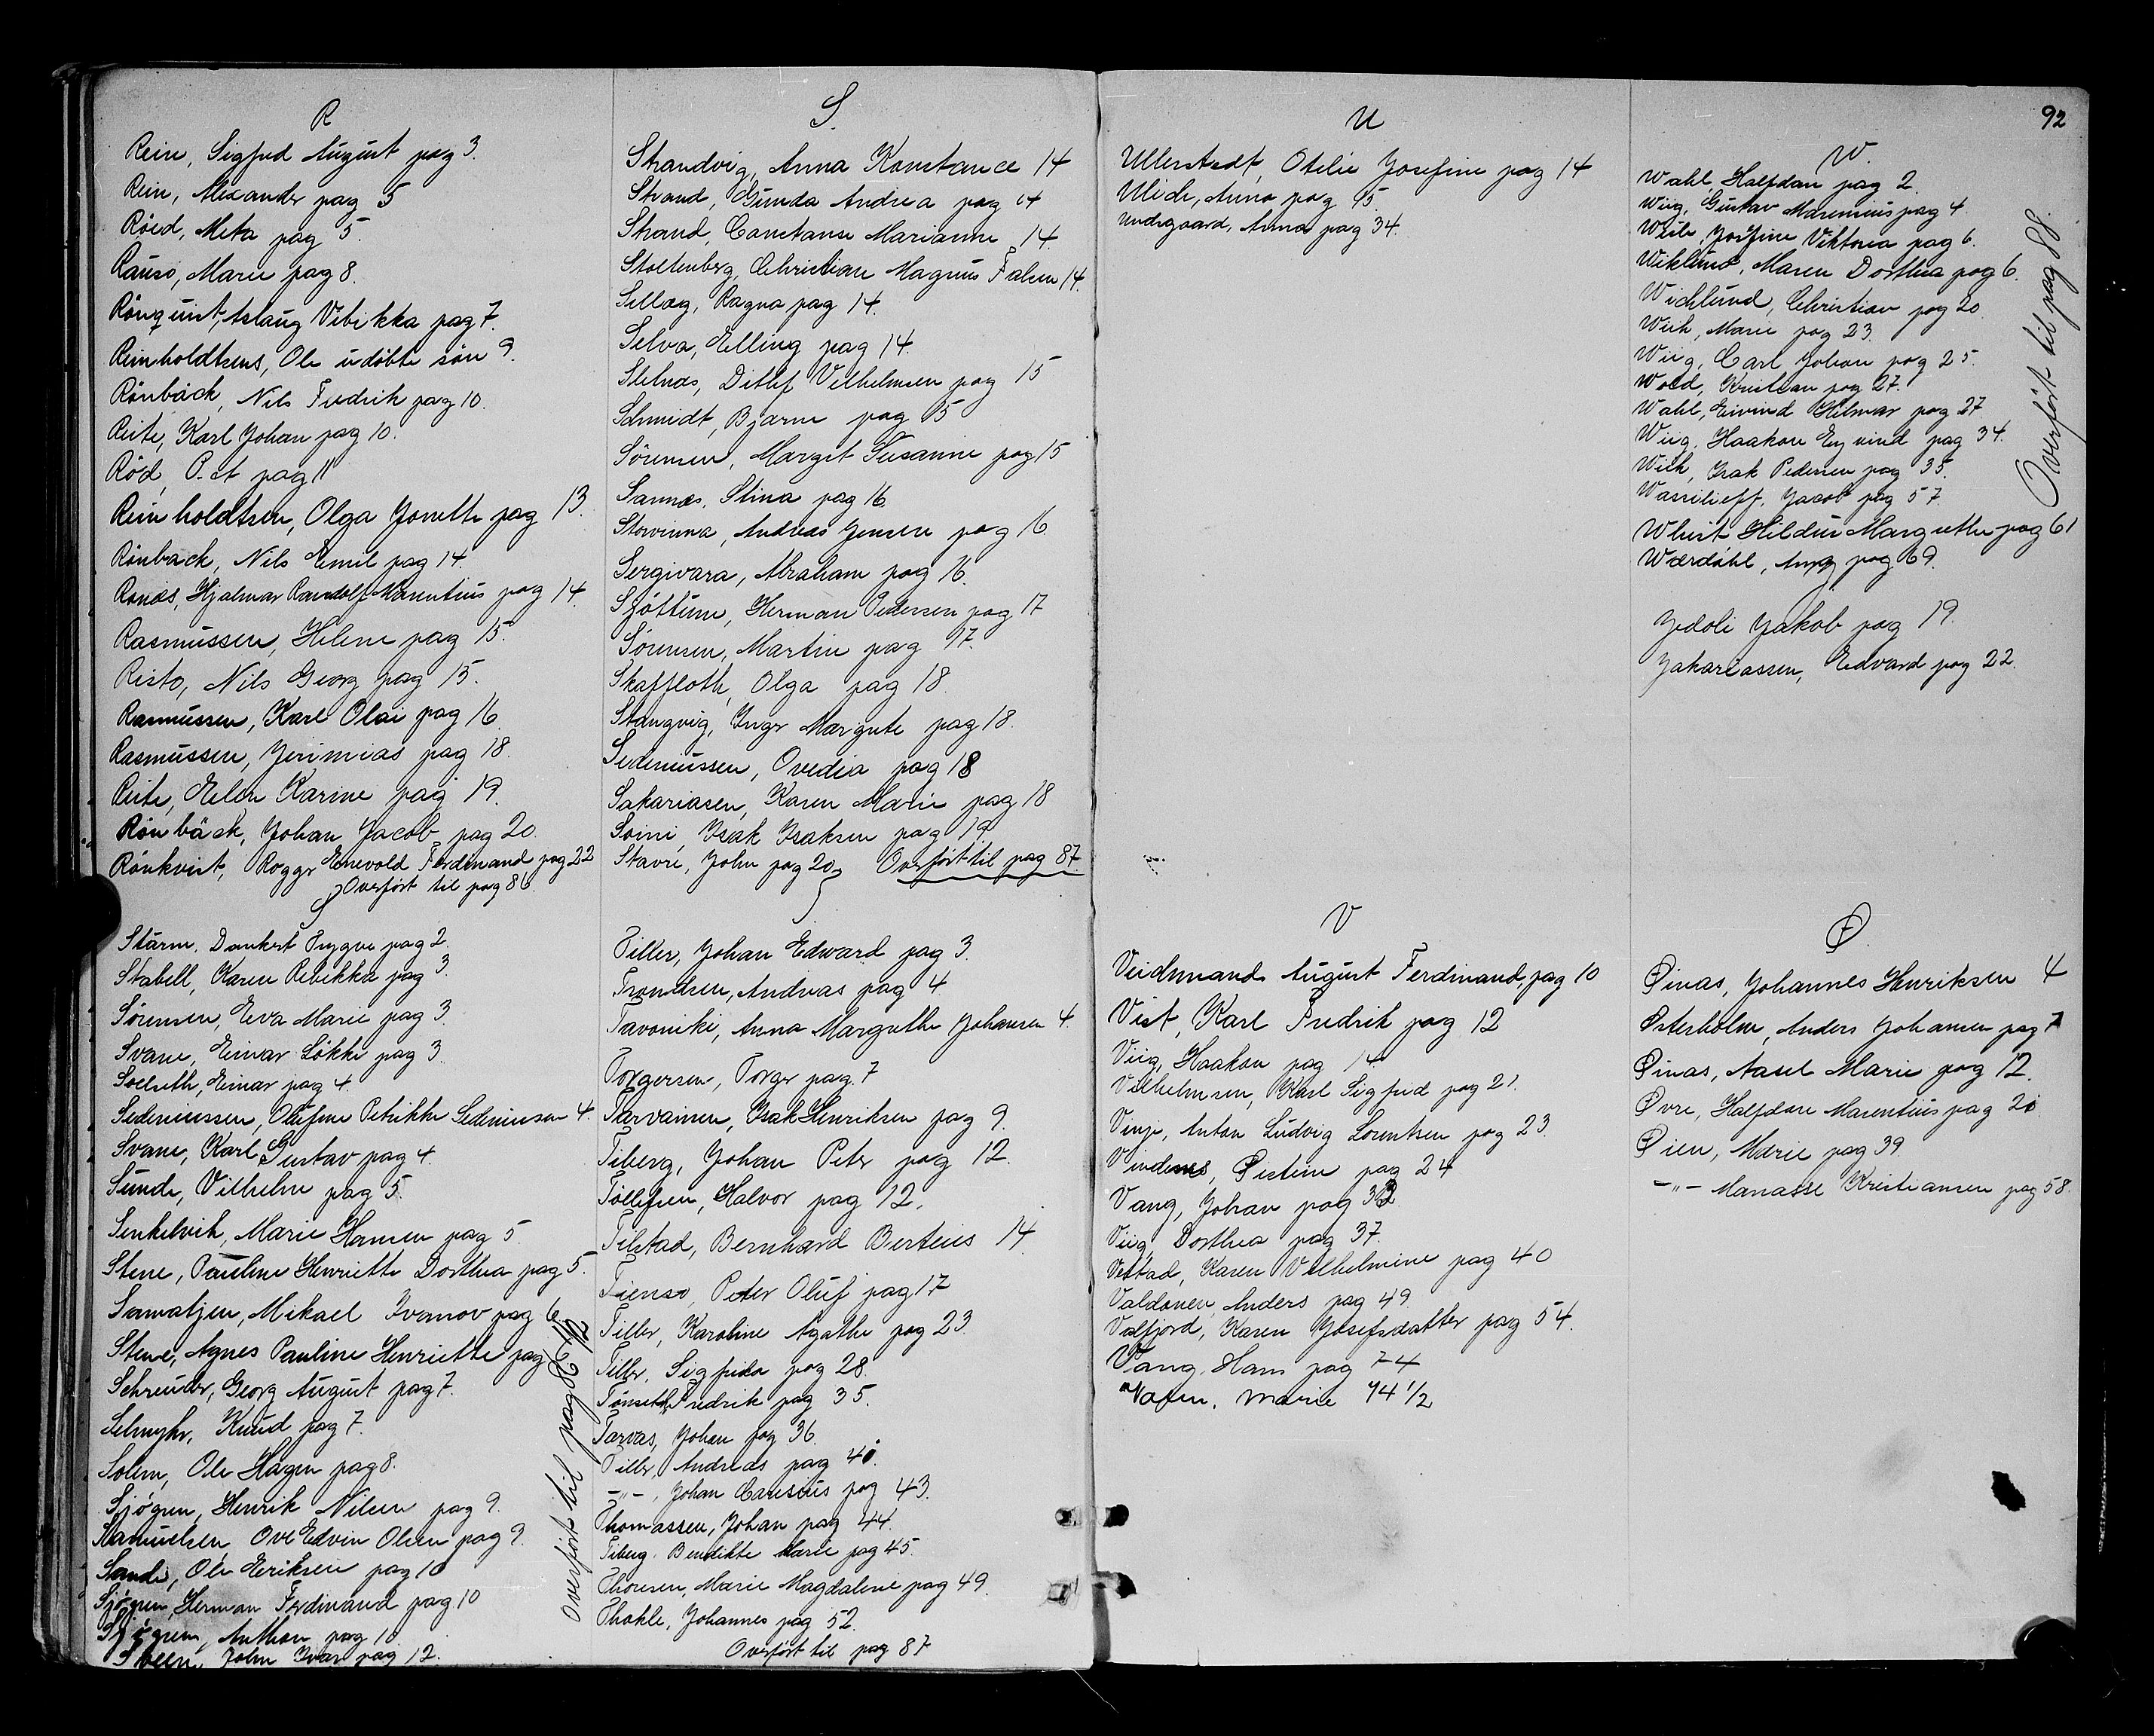 R
Rein, Sigfrid August pag 3.
Rein, Alexander pag 5
Röed, Meta pag 5.
Rauso, Marie pag 8.
Rönquist, Aslaug Vibikka pag 7.
Reinholdtsens, Ole udöbte sön 9.
Rönbäck, Nils Fredrik pag 10.
Reite, Karl Johan pag 10.
Röd, P. et pag 11
Reinholdtsen, Olga Jonette pag 13.
Rönback, Nils Emil pag 14.
Ronæs, Hjalmar Randolf Marentius pag 14.
Rasmussen, Helene pag 15.
Risto, Nils Georg pag 15.
Rasmussen, Karl Olai pag 16
Rasmussen, Jerimias pag 18.
Reite, Ellen Karine pag 19.
Rönbäck, Johan Jacob pag 20.
Rönkvist, Roggr Enevold Ferdinand pag 22
Overfört til pag 86.
S
Sturm, Dankert Trygve pag 2.
Stabell, Karen Rebekka pag 3.
Sörensen, Eva Marie pag 3.
Svane, Einar Lökke pag 3.
Soelseth, Einar pag 4.
Sedeniussen, Olufine Petrikke Sedeniusen 4.
Svane, Karl Gustav pag 4.
Sunde, Vilhelm pag 5.
Senkelvik, Marie Hansen pag 5.
Stene, Pauline Henriette Dorthea pag 5.
Samatjen, Mikael Ivanov pag 6
Stene, Agnes Pauline Henriette pag 6
Schreuder, Georg August pag 7.
Selmyhr, Knud pag 7.
Solem, Ole Hagen pag 8.
Sjögren, Henrik Nilsen pag 9.
Samuelsen, Ove Edvin Olsen pag 9.
Sandi, Ole Eriksen pag 10
Sjögren, Herman Ferdinand pag 10
Sjögren, Anthon pag 10
Sveen, John Ivar pag 12.
Overfört til pag 86 1/2
S.
Strandvig, Anna Konstance 14
Strand, Gunda Andrea pag 14
Strand, Constanse Marianne 14.
Stoltenberg, Christian Magnus Falsen 14.
Sellæg, Ragna pag 14.
Selva, Elling pag 14.
Slelnæs, Ditlef Vilhelmsen pag 15
Schmidt, Bjarne pag 15
Sörensen, Margit Susanne pag 15
Sannes, Stina pag 16.
Storvinna, Andreas Jensen pag 16.
Sergivara, Abraham pag 16.
Sjöttum, Herman Pedersen pag 17
Sörensen, Martin pag 17.
Skaffloth, Olga pag 18.
Stangvig, Inger Margrete pag 18.
Sedeniussen, Ovedia pag 18
Sakariasen, Karen Marie pag 18
Soini, Isak Isaksen pag 19
Stavre, John pag 20, Overfört til pag 87.
Tiller, Johan Edward pag 3.
Trondsen, Andreas pag 4.
Tavoniki, Anna Margrethe Johansen 4.
Torgersen, Torger pag 7
Tarvainen, Isak Henriksen pag 9.
Tiberg, Johan Peter pag 12.
Tollefsen, Halvor pag 12.
Tilstad, Bernhard Berteus 14
Tienso, Peter Oluf pag 17
Tiller, Karoline Agathe pag 23.
Tiller, Sigfrida pag 28.
Tonseth, Fredrik pag 35.
Tarvas, Johan pag 36.
Tiller, Andreas pag 40.
-"- , Johan Carisius pag 43.
Thomassen, Johan pag 44.
Tiberg, Bendikte Marie pag 45.
Thorsen, Marie Magdalene pag 49.
Thokle, Johannes pag 52.
Overfört til pag 87
U
Ullerstedt, Otilie Josefine pag 14
Ulich, Anna pag 15.
Undsgaard, Anna pag 34.
V
Viidnmand August Ferdinand, pag 10
Vist, Karl Fredrik pag 12
Viig, Haakon pag 14.
Vilhelmsen, Karl Sigfrid pag 21.
Vinje, Anton Ludvig Lorentsen pag 23.
Vindenes, Øistein pag 24
Vang, Johan pag 33
Viig, Dorthea pag 37.
Vestad, Karen Vilhelmine pag 40
Valdonen, Anders pag 49.
Valfjord, Karen Josefsdatter pag 54.
Vang, Hans pag 74
Vafen, Marie 74 1/2
92
W.
Wahl, Halfdan pag 2.
Wiig, Gustav Marenius pag 4.
Josefine Viktoria pag 6.
Wiklund, Maren Dorthea pag 6.
Wichlund, Christian pag 20
Wiik, Marie pag 23.
Wiig, Carl Johan pag 25.
Wold, Kristian pag 27.
Wahl, Eivind Hilmar pag 27
Wiig, Haakon Eyvind pag 34.
Wiik, Isak Pedersen pag 35.
Wassilieff, Jacob pag 57.
Whist Hildur Margrethe pag 61
Wærdahl, pag 69.
Overfört til pag 88.
Jedoli Jakob pag 19.
Jakariassen, Edvard pag 22.
Ø
Øinas, Johannes Henriksen 4
Østerholm, Anders Johansen pag 7
Øinas, Aasel Marie pag 12.
Øvre, Halfdan Marentius pag 20
Øien, Marie pag 39.
-"- Manasse Kristiansen pag 58.